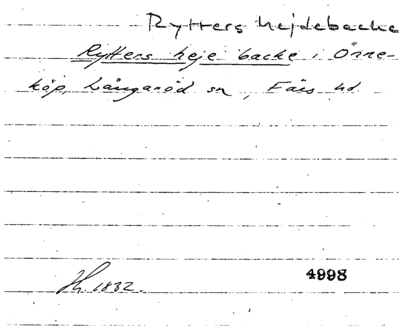 Rytters hejdebacke
Rytters heje backe i Önne-
köp, Långaröd sn, Färs hd.
Jh. 1832.
4998